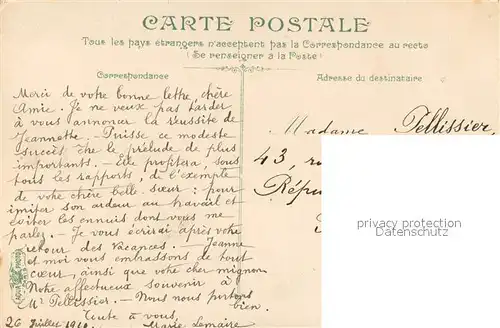 CARTE POSTALE
Tous les pays étrangers n'acceptent pas la Correspondance au recto
(Se renseigner à la Poste)
Correspondance
Adresse du destinataire
Merci de votre bonne lettre, chère
Amie. Je ne veux pas tarder
à vous annoncer la réussite de
Jeannette. - Puisse ce modeste
succès être le prélude de plus
importants. - Elle profitera, sous
tous les rapports, de l'exemple
de votre chère belle-sœur : pour
imiter son ardeur au travail et
éviter les ennuis dont vous me
parlez. - Je vous écrirai après votre
retour des vacances. Jeanne
et moi vous embrassons de tout
cœur, ainsi que votre cher mignon.
Notre affectueux souvenir à
Mr Pellissier. - Nous nous portons
bien.
Toute à vous,
26 Juillet Marie Lemaire
Madame Pellissier
43, 
Répu
privacy protection
watermark